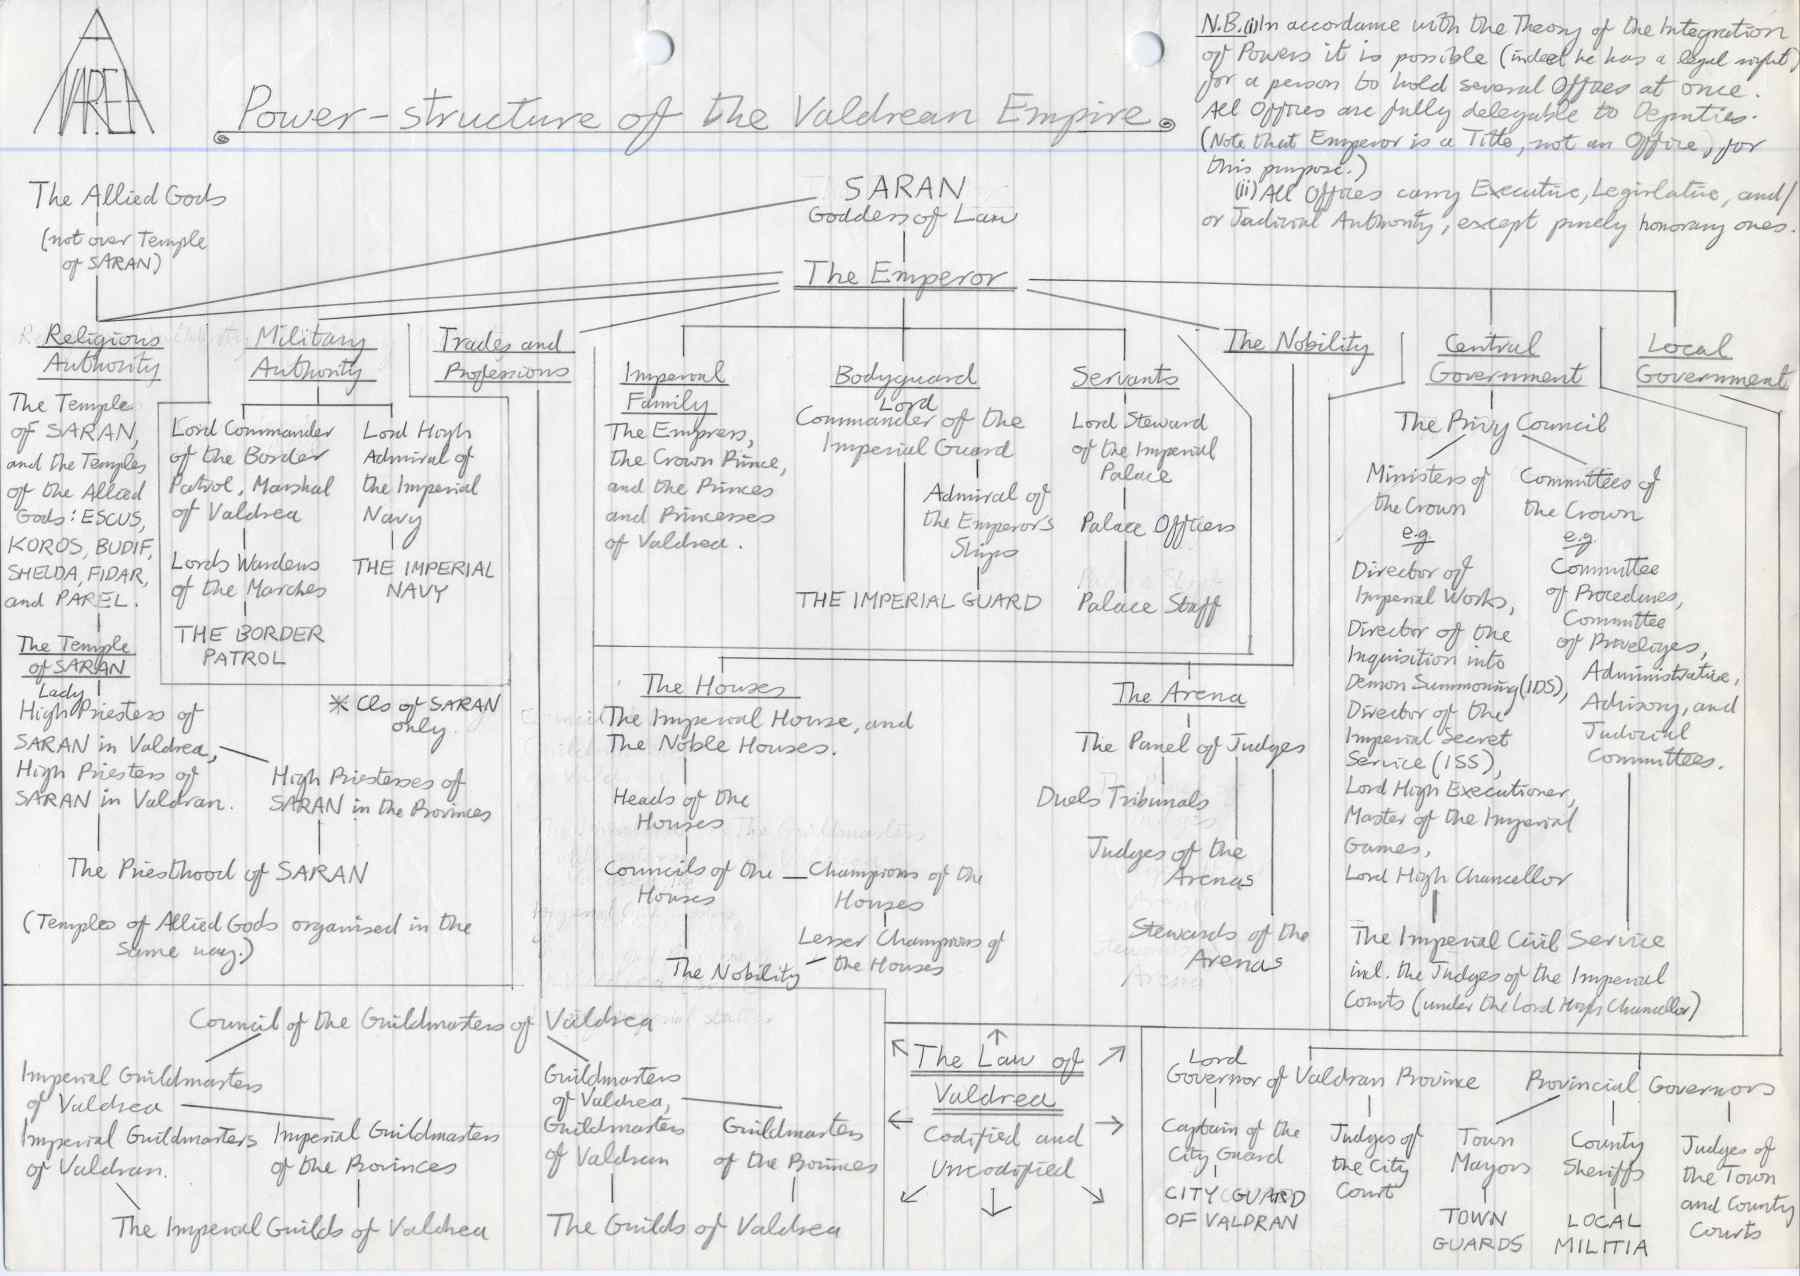 VAREA
Power-structure of the Valdrean Empire
N.B.(i) In accordance with the Theory of the Integration
of Powers it is possible (indeed he has a legal right)
for a person to hold several Offices at once.
All Offices are fully delegable to Deputies.
(Note that Emperor is a Title, not an Office, for
this purpose.)
(ii) All Offices carry Executive, Legislative, and/
or Judicial Authority, except purely honorary ones.
The Allied Gods
(not over Temple
of SARAN)
SARAN
Goddess of Law
The Emperor
Religious
Authority
The Temple
of SARAN,
and the Temples
of the Allied
Gods: ESCUS,
KOROS, BUDIF,
SHELDA, FIDAR,
and PAREL.
The Temple
of SARAN
Lady
High Priestess of
SARAN in Valdrea,
High Priestess of
SARAN in Valdran.
High Priestesses of
SARAN in the Provinces
The Priesthood of SARAN
(Temples of Allied Gods organised in the
same way.)
Military
Authority
Lord Commander
of the Border
Patrol, Marshal
of Valdrea
Lords Wardens
of the Marches
THE BORDER
PATROL
Lord High
Admiral of
the Imperial
Navy
THE IMPERIAL
NAVY
* Cls of SARAN
only.
Trades and
Professions
Imperial
Family
The Empress,
the Crown Prince,
and the Princes
and Princesses
of Valdrea.
Bodyguard
Lord
Commander of the
Imperial Guard
Admiral of
the Emperor's
Ships
THE IMPERIAL GUARD
Servants
Lord Steward
of the Imperial
Palace
Palace Officers
Palace Staff
The Nobility
The Houses
The Imperial House, and
The Noble Houses.
Heads of the
Houses
Councils of the
Houses
Champions of the
Houses
Lesser Champions of
the Houses
The Nobility
The Arena
The Panel of Judges
Duels Tribunals
Judges of the
Arenas
Stewards of the
Arenas
Central
Government
The Privy Council
Ministers of
the Crown
e.g.
Director of
Imperial Works,
Director of the
Inquisition into
Demon Summoning (IDS),
Director of the
Imperial Secret
Service (ISS),
Lord High Executioner,
Master of the Imperial
Games,
Lord High Chancellor
Committees of
the Crown
e.g.
Committee
of Procedures,
Committee
of Priveleges,
Administrative,
Advisory, and
Judicial
Committees.
The Imperial Civil Service
incl. the Judges of the Imperial
Courts (under the Lord High Chancellor)
Local
Government
Council of the Guildmasters of Valdrea
Imperial Guildmasters
of Valdrea
Imperial Guildmasters
of Valdran.
Imperial Guildmasters
of the Provinces
The Imperial Guilds of Valdrea
Guildmasters
of Valdrea,
Guildmasters
of Valdran
Guildmasters
of the Provinces
The Guilds of Valdrea
The Law of
Valdrea
Codified and
Uncodified
Lord
Governor of Valdran Province
Captain of the
City Guard
CITY GUARD
OF VALDRAN
Judges of
the City
Court
Provincial Governors
Town
Mayors
TOWN
GUARDS
County
Sheriffs
LOCAL
MILITIA
Judges of
the Town
and County
Courts